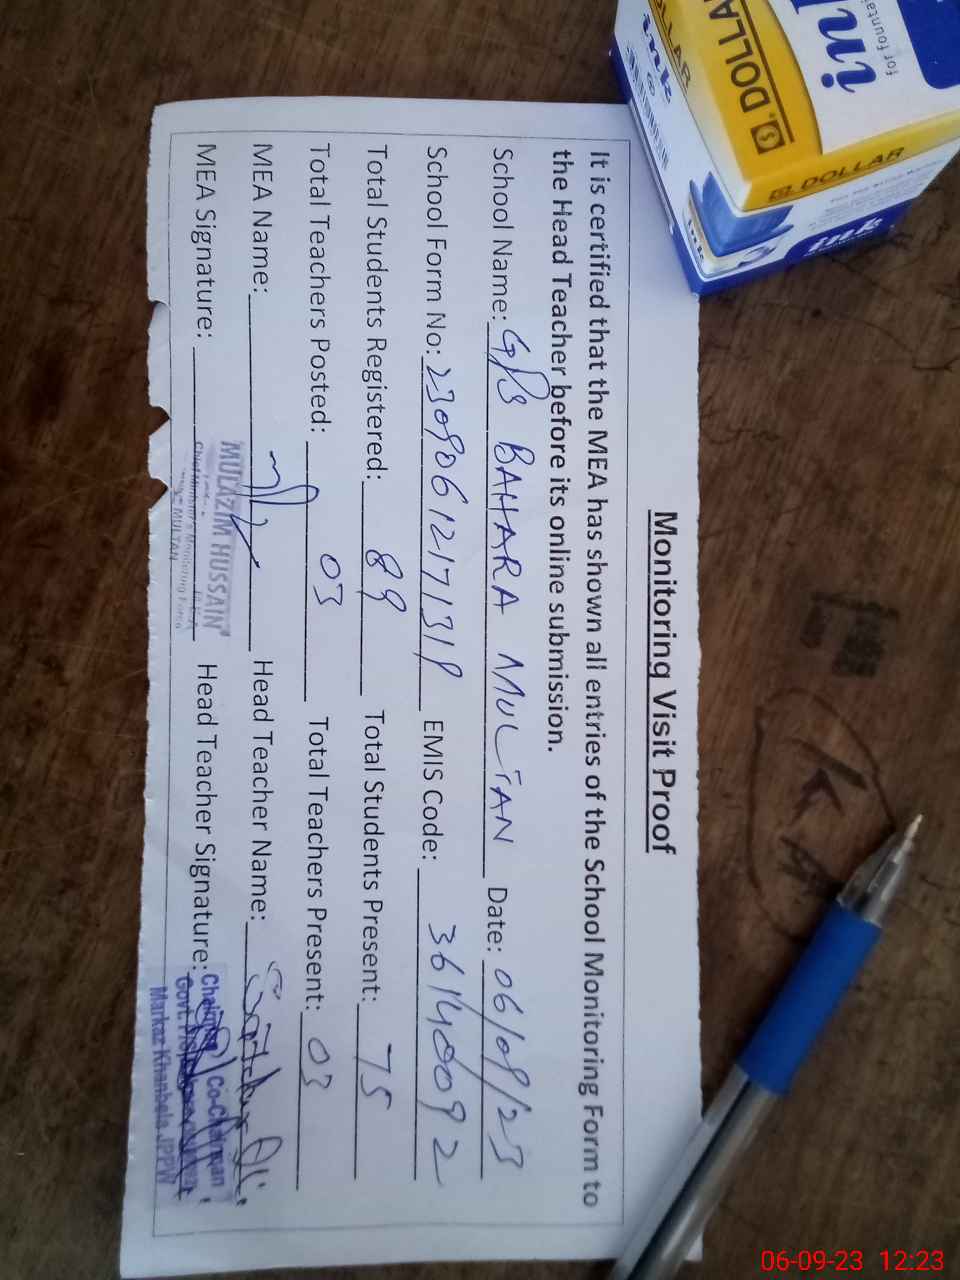 Monitoring Visit Proof
It is certified that the MEA has shown all entries of the School Monitoring Form to
the Head Teacher before its online submission.
School Name: GPS BAHARA MULTAN Date: 06/09/23
School Form No: 2309061217131P EMIS Code: 36140092
Total Students Registered: 89 Total Students Present: 75
Total Teachers Posted: 03 Total Teachers Present: 03
MEA Name: Head Teacher Name:
MEA Signature: Head Teacher Signature:
MULAZIM HUSSAIN
Chief Minister's Monitoring Force
MULTAN
Co-Chairman
Govt.
Markaz Khanbela JPPW
ink
for fountain
DOLLAR
DOLLAR
ink
DOLLAR
ink
ink
06-09-23 12:23